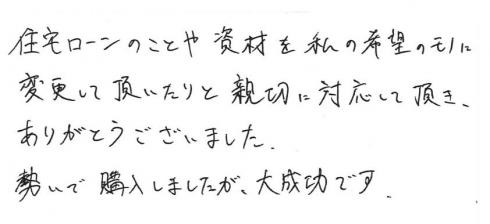 住宅ローンのことや資材を私の希望のモノに
変更して頂いたりと親切に対応して頂き、
ありがとうございました.
勢いで購入しましたが、大成功です.